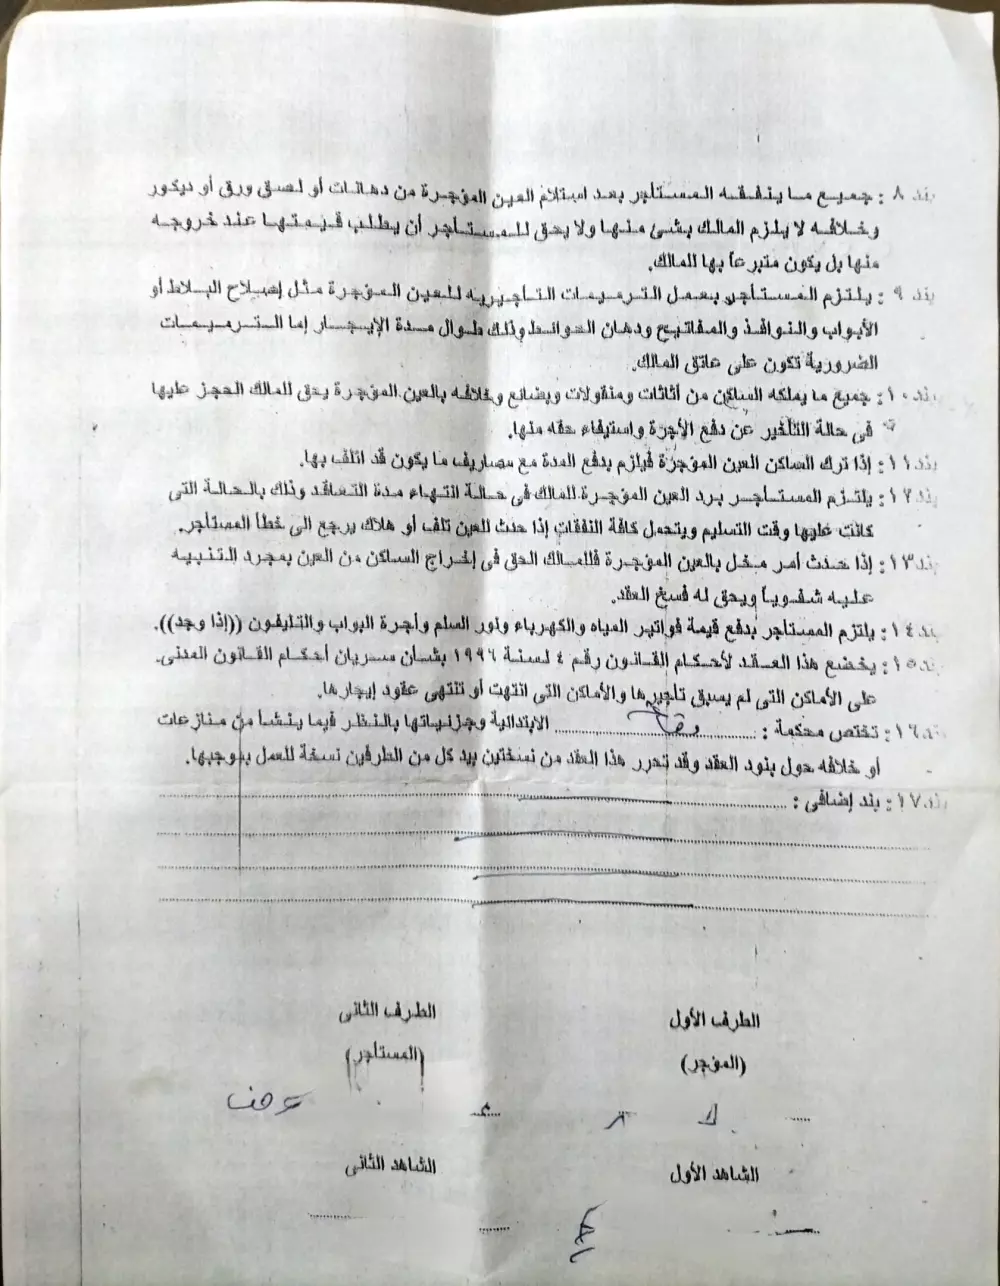 بند ٨ : جميع ما ينفقه المستأجر بعد استلام العين المؤجرة من دهانات أو لصق ورق أو ديكور
وخلافه لا يلزم المالك بشئ منها ولا يحق للمستأجر أن يطلب قيمتها عند خروجه
منها بل يكون متبرعاً بها للمالك.
بند ٩ : يلتزم المستأجر بعمل الترميمات التأجيرية للعين المؤجرة مثل إصلاح البلاط أو
الأبواب والنوافذ والمفاتيح ودهان الحوائط وذلك طوال مدة الإيجار إما الترميمات
الضرورية تكون على عاتق المالك.
بند ١٠ : جميع ما يملكه الساكن من أثاثات ومنقولات وبضائع وخلافه بالعين المؤجرة يحق للمالك الحجز عليها
فى حالة التأخير عن دفع الأجرة واستيفاء حقه منها.
بند ١١ : إذا ترك الساكن العين المؤجرة فيلزم بدفع المدة مع مصاريف ما يكون قد اتلف بها.
بند ١٢ : يلتزم المستأجر برد العين المؤجرة للمالك فى حالة انتهاء مدة التعاقد وذلك بالحالة التى
كانت عليها وقت التسليم ويتحمل كافة النفقات إذا حدث للعين تلف أو هلاك يرجع الى خطأ المستأجر.
بند ١٣ : إذا حدث أمر مخل بالعين المؤجرة فللمالك الحق فى إخراج الساكن من العين بمجرد التنبيه
عليه شفوياً ويحق له فسخ العقد.
بند ١٤ : يلتزم المستأجر بدفع قيمة فواتير المياه والكهرباء ونور السلم وأجرة البواب والتليفون ((إذا وجد)).
بند ١٥ : يخضع هذا العقد لأحكام القانون رقم ٤ لسنة ١٩٩٦ بشأن سريان أحكام القانون المدنى.
على الأماكن التى لم يسبق تأجيرها والأماكن التى انتهت أو تنتهى عقود إيجارها.
بند ١٦ : تختص محكمة : الابتدائية وجزئياتها بالنظر فيما ينشأ من منازعات
أو خلافه حول بنود العقد وقد تحرر هذا العقد من نسختين بيد كل من الطرفين نسخة للعمل بموجبها.
بند ١٧ : بند إضافى :
الطرف الأول الطرف الثانى
(المؤجر) (المستأجر)
الشاهد الأول الشاهد الثانى